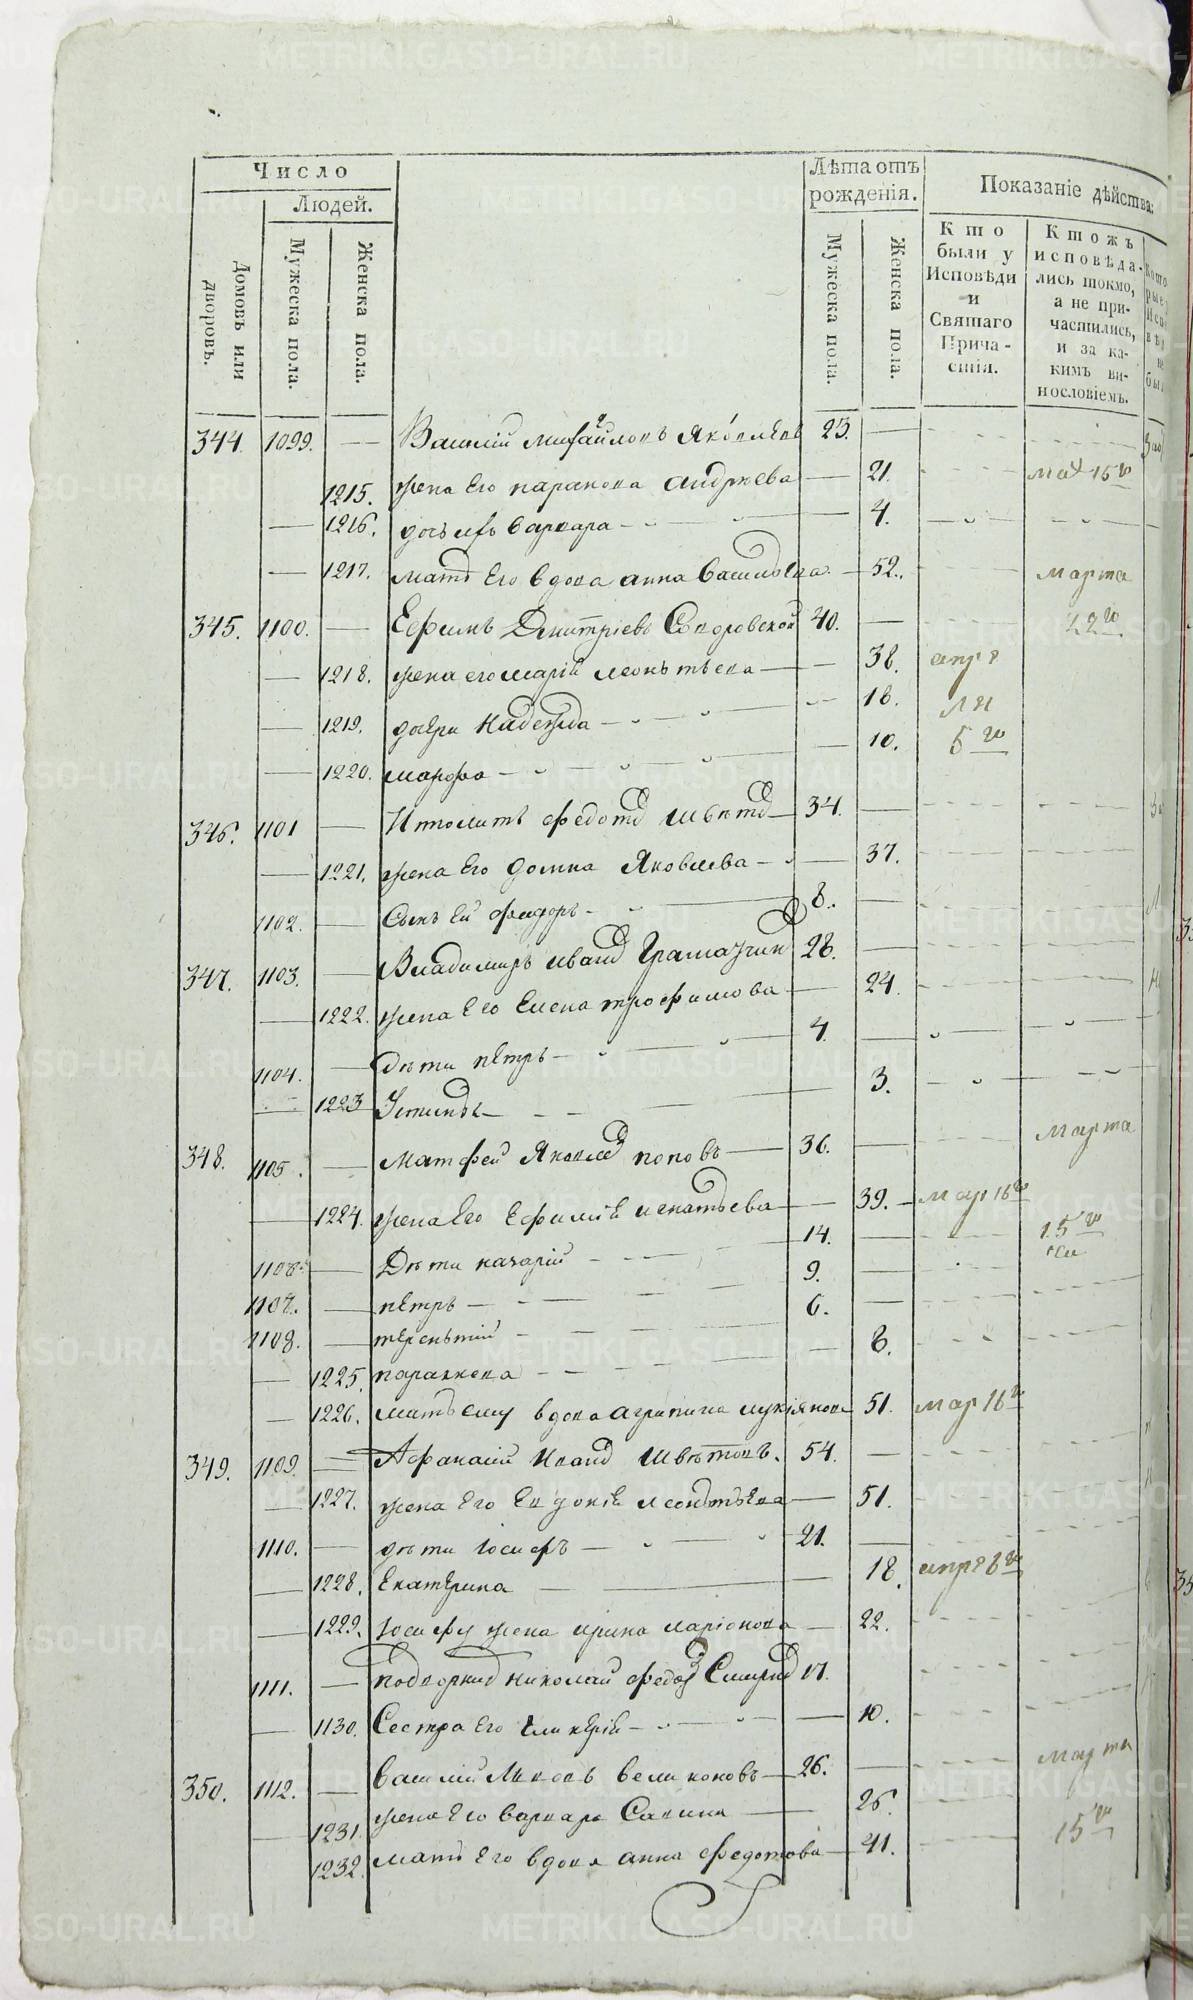 Число
Людей.
Домовъ или дворовъ.
Мужеска пола.
Женска пола.
Лѣта отъ рожденія.
Мужеска пола.
Женска пола.
Показаніе дѣйства:
Кто были у Исповѣди и Святаго Причастія.
Ктожъ исповѣдались токмо, а не причастились, и за какимъ винословіемъ.
344. 1099. — Василій Михайловъ Яковлевъ 23. —
1215. жена Его параковa андрѣева — 21. мар 15го
— 1216. дочь ихъ варвара — 4.
— 1217. мать Его вдова анна васильева — 52. марта
345. 1100. — Ефимъ Дмитріевъ Сыропятовской 40. — 22го
— 1218. жена его марія леонтьева — 38. апре
— 1219. дочери надежда — 18. ля
— 1220. марфа — 10. 5го
346. 1101 — Ипполитъ федотовъ швѣтовъ 34. —
— 1221. жена Его домна Яковлева — 37.
1102. — Сынъ Ей федоръ — 8. —
347. 1103. — Владимиръ ивановъ 28. —
— 1222. жена Его Елена трофимова — 24.
1104. — Дѣти пётръ — 4. —
— 1223 Устинья — 3.
348. 1105. — Матфей Яковлевъ поповъ — 36. — марта
— 1224. жена Его Ефимія игнатьева — 39. мар 16го
1106. — Дѣти назарій — 14. — 15го
1107. — пётръ — 9. —
1108. — терентій — 6. —
— 1225. парасковa — 8.
— 1226. мать ему вдова агрипина лукіянова 51. мар 16го
349. 1109. — Афанасій Ивановъ швѣтовъ. 54. —
— 1227. жена Его Евдокія леонтьева — 51.
1110. — дѣти іосифъ — 21. —
— 1228. Екатерина — 18. апре 8го
— 1229. іосифу жена ирина ларіонова — 22.
1111. — николай федоровъ 17.
— 1130. Сестра Его гликерія — 10.
350. 1112. — василій великоновъ — 26. — марта
— 1231. жена Его варвара Савина — 26. 15го
1232. мать Его вдова анна федотова — 41.